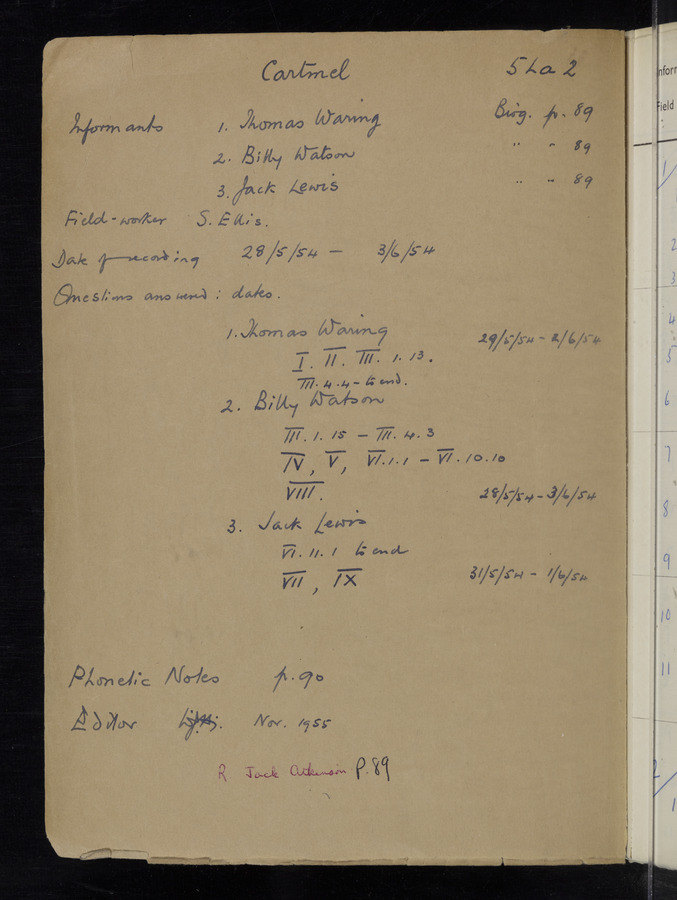 Cartmel 5 La 2
Informants 1. Thomas Waring Biog. p. 89
2. Billy Watson " " 89
3. Jack Lewis " " 89
Field-worker S. Ellis.
Date of recording 28/5/54 — 3/6/54
Questions answered : dates.
1. Thomas Waring 29/5/54 - 2/6/54
I. II. III. 1. 13.
III. 4. 4 - to end.
2. Billy Watson
III. 1. 15 - III. 4. 3
IV, V, VI.1.1 - VI.10.10
VIII. 28/5/54 - 3/6/54
3. Jack Lewis
VI. 11. 1 to end
VII, IX 31/5/54 - 1/6/54
Phonetic Notes p. 90
Editor Nov. 1955
R Jack Atkinson P. 89
Infor
Field
1
2
3
4
5
6
7
8
9
10
11
2
1